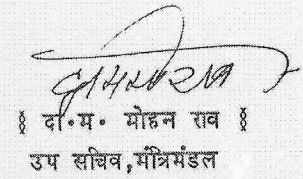 § दी·म· मोहन राव §
उप सचिव,मंत्रिमंडल